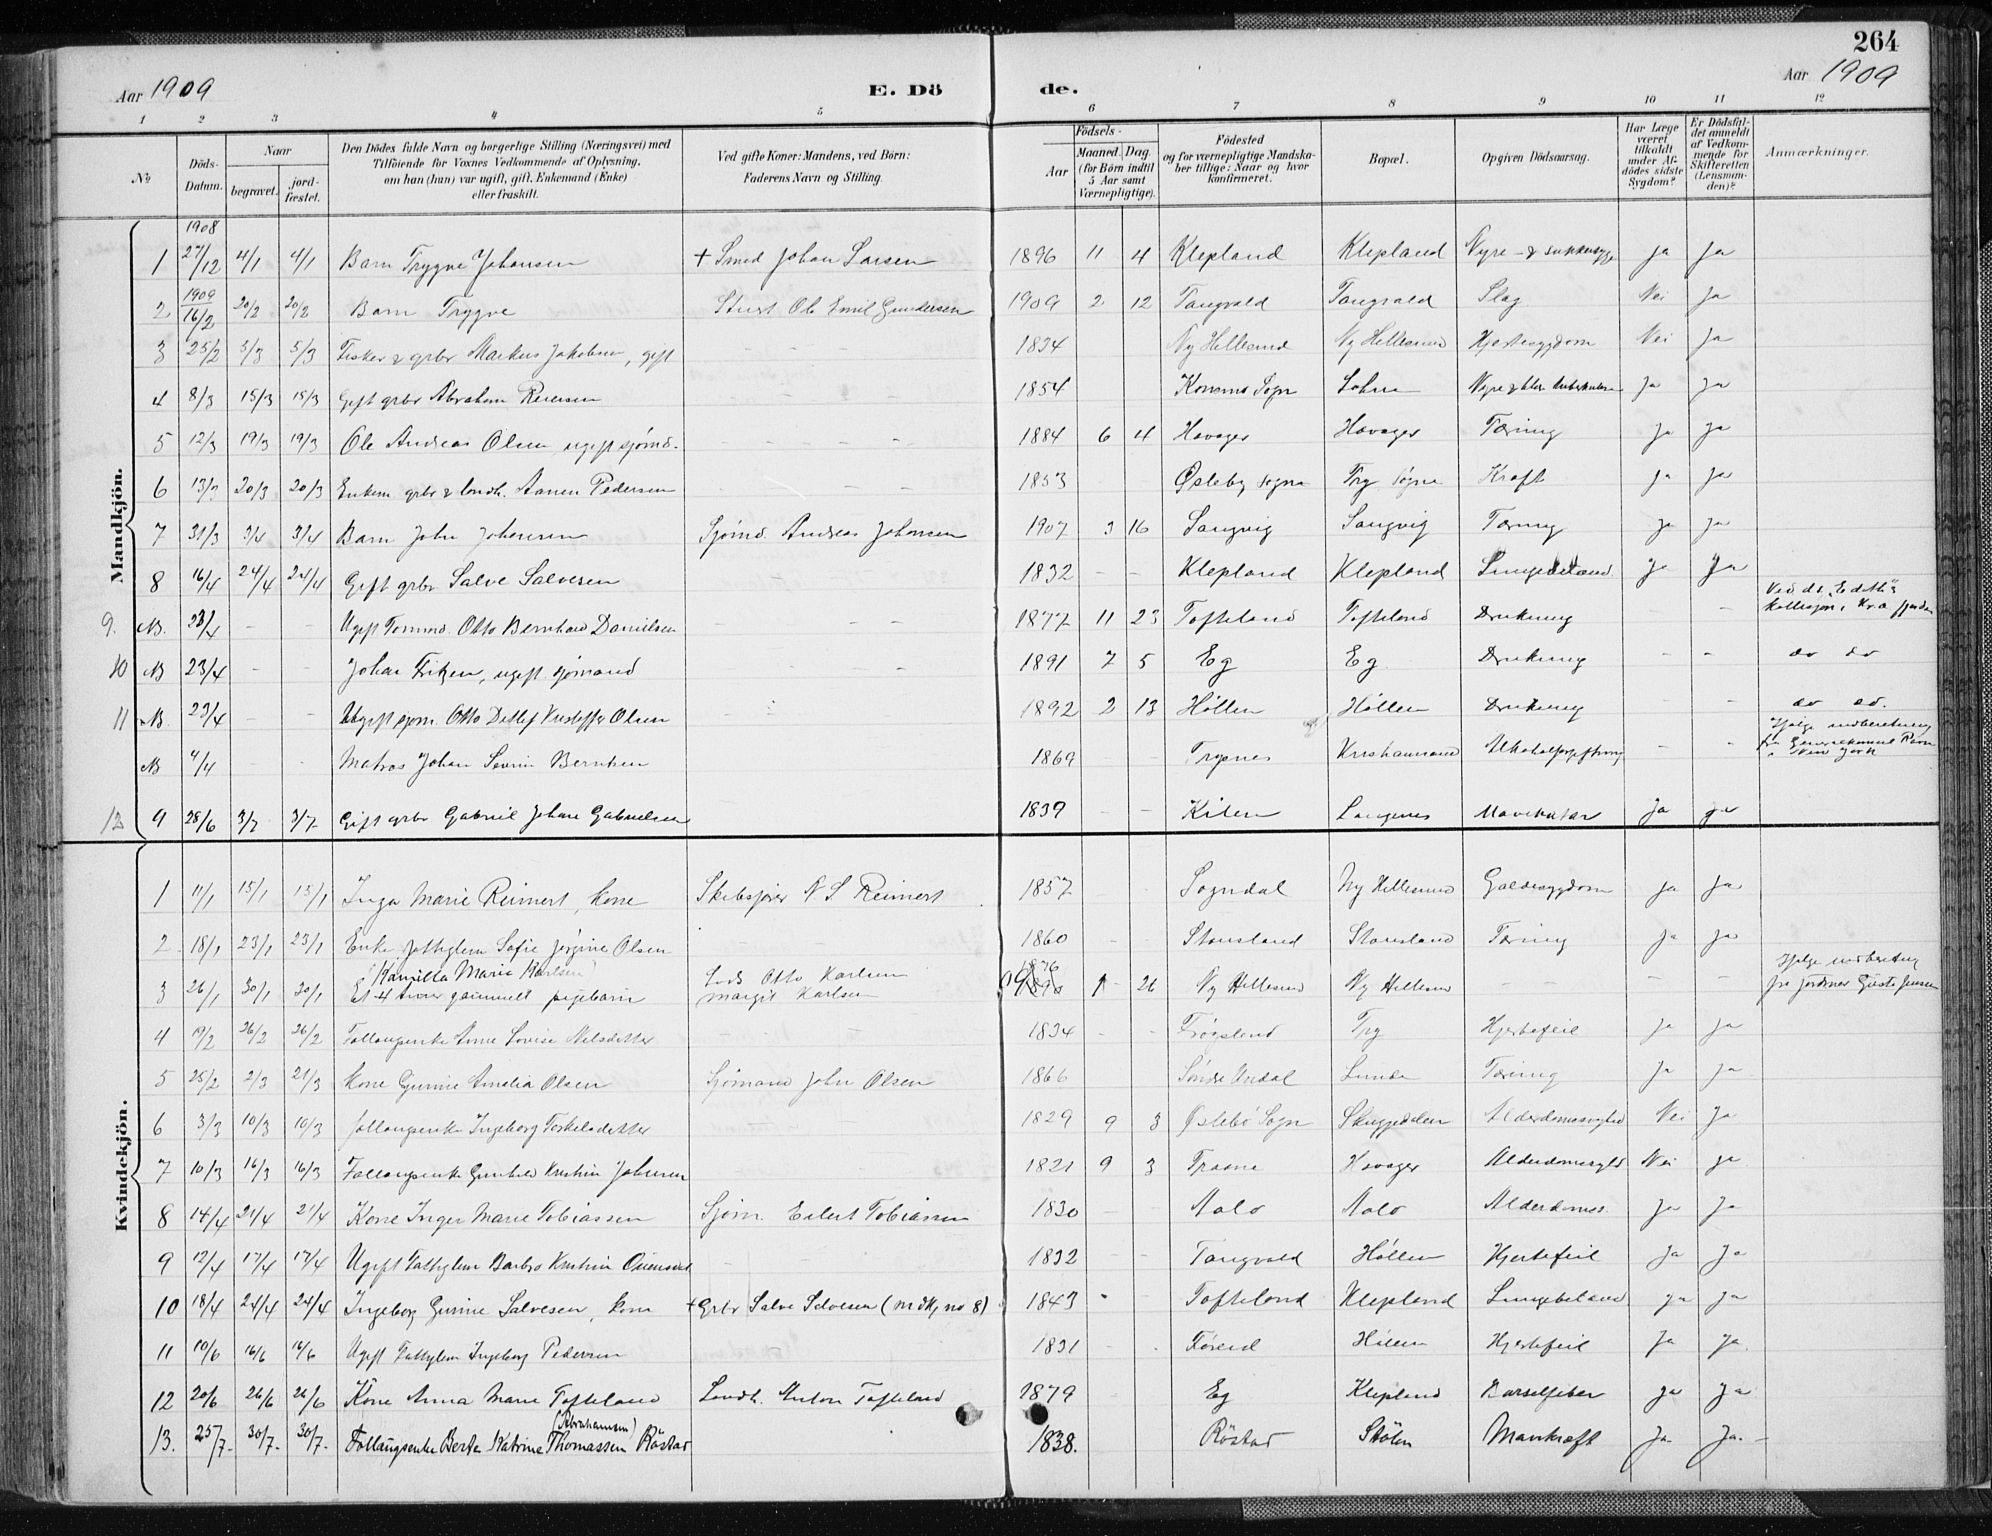 264
Aar 1909 E. Dö de. Aar 1909
1 2 3 4 5 6 7 8 9 10 11 12
No
Döds-Datum.
Naar begravet. jord-fæstet.
Den Dödes fulde Navn og borgerlige Stilling (Næringsvei) med
Tilföiende for Voxnes Vedkommende af Oplysning,
om han (hun) var ugift, gift, Enkemand (Enke)
eller fraskilt.
Ved gifte Koner: Mandens, ved Börn:
Faderens Navn og Stilling.
Födsels-
Aar Maaned. Dag.
(for Börn indtil 5 Aar samt Værnepligtige).
Födested
og for værnepligtige Mandska-
ber tillige: Naar og hvor
konfirmeret.
Bopæl.
Opgiven Dödsaarsag.
Har Læge været tilkaldt under Afdödes sidste Sygdom?
Er Dödsfaldet anmeldt af Vedkommende for Skifteretten (Lensmanden)?
Anmærkninger.
Mandkjön.
1908
1 27/12 4/1 4/1 Barn Trygve Johansen + Smed Johan Larsen 1896 11 4 Klepland Klepland Nyre- & sukkersyge ja ja
1909
2 16/2 20/2 20/2 Barn Trygve Ole Emil Gundersen 1909 2 12 Tangvald Tangvald Slag Nei Ja
3 25/2 5/3 5/3 Fisker & grbr Markus Jakobsen, gift 1834 Ny Hellesund Ny Hellesund Hjertesygdom Nei Ja
4 8/3 15/3 15/3 Gift grbr Abraham Reiersen 1854 Konsmo Sogn Lohne Ja ja
5 12/3 19/3 19/3 Ole Andreas Olsen ugift sjømd. 1884 6 4 Havager Havager Tæring Ja ja
6 13/3 20/3 20/3 Enkem grbr & landh. Aanen Pedersen 1853 Øslebø sogn Try Søgne Kræft ja ja
7 31/3 3/4 3/4 Barn John Johansen Sjømd. Andreas Johansen 1907 3 16 Langvig Langvig Tæring ja ja
8 16/4 24/4 24/4 Gift grbr Salve Salvesen 1832 - - Klepland Klepland Lungebetænd. Ja Ja
9. NB. 23/4 - - Ugift Tømmd. Otto Bernhard Danielsen 1877 11 23 Tofteland Tofteland Drukning - Ved ds "Edith"s kollisjon i Kr.a fjorden
10 NB 23/4 - - Johan Fritzen, ugift sjømand 1891 7 5 Eg Eg Drukning - - do do
11 NB. 23/4 - - Ugift sjøm. Otto Detlef Kristoffer Olsen 1892 2 13 Høllen Høllen Drukning - do do.
NB 4/4 - Matros Johan Severin Berntsen 1869 Trysnes Kristiansand Alkoholforgiftning - - Ifølge indberetning fra Generalkonsul Ravn i New York
12 9 28/6 3/7 3/7 Gift grbr Gabriel Johan Gabrielsen 1839 - - Kilen Langenes Mavekatar Ja ja
Kvindekjön.
1 11/1 15/1 15/1 Inga Marie Reinert, kone Skibsfører N S Reinert 1857 Sogndal Ny Hellesund Galdesygdom ja ja
2 18/1 23/1 23/1 Enke fattiglem Sofie Jørgine Olsen 1860 Stausland Stausland Tæring Ja ja
(Kamilla Marie Karlsen)
3 26/1 30/1 30/1 Et 4 timer gammelt pigebarn Lods Otto Karlsen Margit Karlsen 09 1 26 Ny Hellesund Ny Hellesund - - - - Ifølge indberetning fra jordmor Gusta Jensen
4 19/2 26/2 26/2 Follaugsenke Anne Lovise Nilsdatter 1834 - - Frøysland Try Hjertefeil ja ja
5 25/2 2/3 21/3 Kone Gunine Amalia Olsen Sjømand John Olsen 1866 Søndre Undal Lunde Tæring ja ja
6 3/3 10/3 10/3 follaugsenke Ingeborg Torkelsdatter 1829 9 3 Øslebø Sogn Skuggedalen Alderdomssvaghed Nei Ja
7 10/3 16/3 16/3 Follaugsenke Gunhild Kristine Johnsen 1821 9 3 Traane Havager Nei ja
8 14/4 21/4 21/4 Kone Inger Marie Tobiassen Sjøm. Eilert Tobiassen 1830 - - Aalo Aalo Alderdoms. Ja Ja
9 12/4 17/4 17/4 Ugift Fattiglem Barbro Kristine 1832 Tangvald Høllen Hjertefeil Ja Ja
10 18/4 24/4 24/4 Ingeborg Gunine Salvesen, kone + Grbr Salve Salvesen (mdkj no 8) 1843 Tofteland Klepland Lungebetænd. ja ja
11 10/6 16/6 16/6 Ugift Fattiglem Ingeborg Pedersen 1831 Høllen Hjertefeil Ja ja
12 20/6 26/6 26/6 Kone Anna Marie Tofteland Landh. Anton Tofteland 1879 Eg Klepland Barselfeber ja ja
(Abrahamsen)
13. 25/7. 30/7. 30/7. Follaugsenke Berte Katrine Thomassen Röstad 1838. Röstad Stölen Mavekræft Ja Ja.